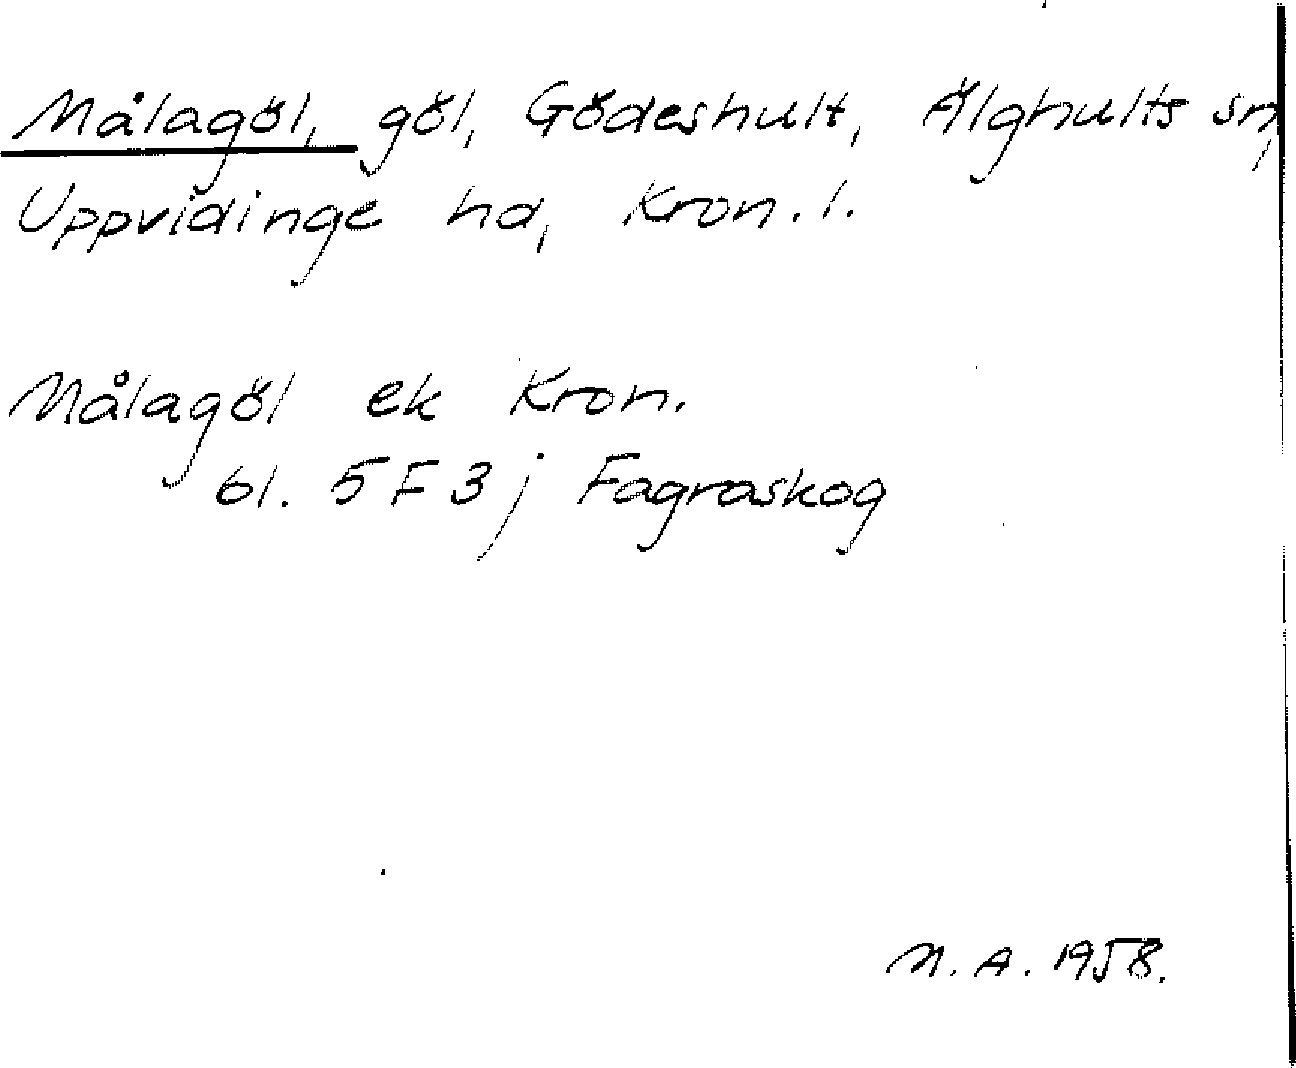 Målagöl, göl, Gödeshult, Älghults sn,
Uppvidinge hd, Kron. l.
Målagöl ek Kron.
bl. 5F3j Fagraskog
M. A. 1958.